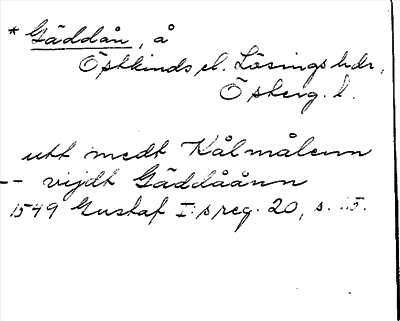 * Gäddån, å
Östkinds el. Lösings hdr,
Österg. l.
utt medt Kålmålenn
-- vijdt Gäddåånn
1549 Gustaf I:s reg. 20, s. 115.